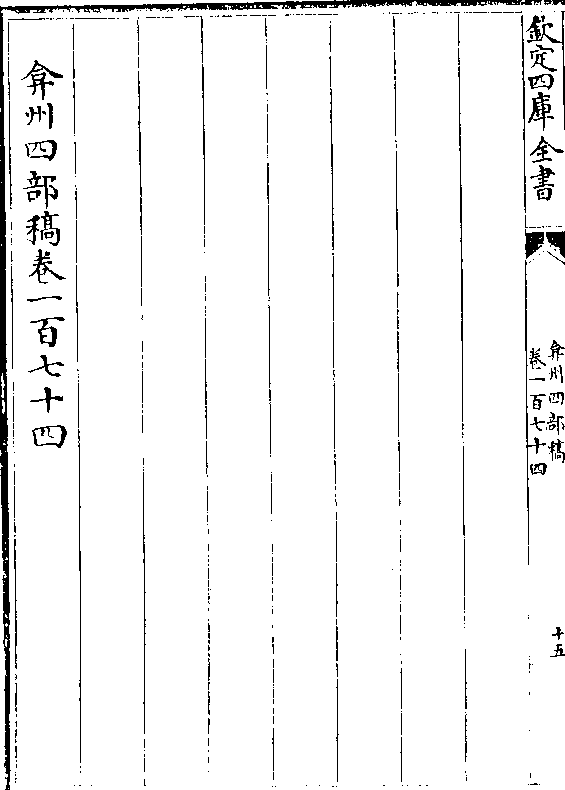 欽定四庫全書
弇州四部稿
卷一百七十四
十五
弇州四部稿卷一百七十四